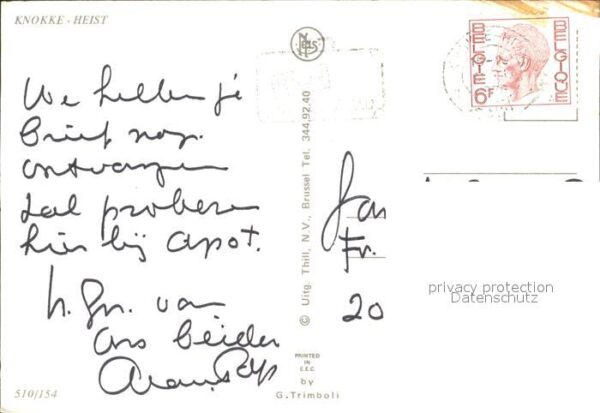 KNOKKE - HEIST
We hebben je
brief nog
ontvangen
zal proberen
hier bij apot.
h. gr. van
ons beiden
510/154
NELS
© Uitg. Thill, N.V., Brussel Tel. 344.92.40
PRINTED
IN
E.E.C.
by
G.Trimboli
BELGIE 6F BELGIQUE
Fr.
20
privacy protection
Datenschutz